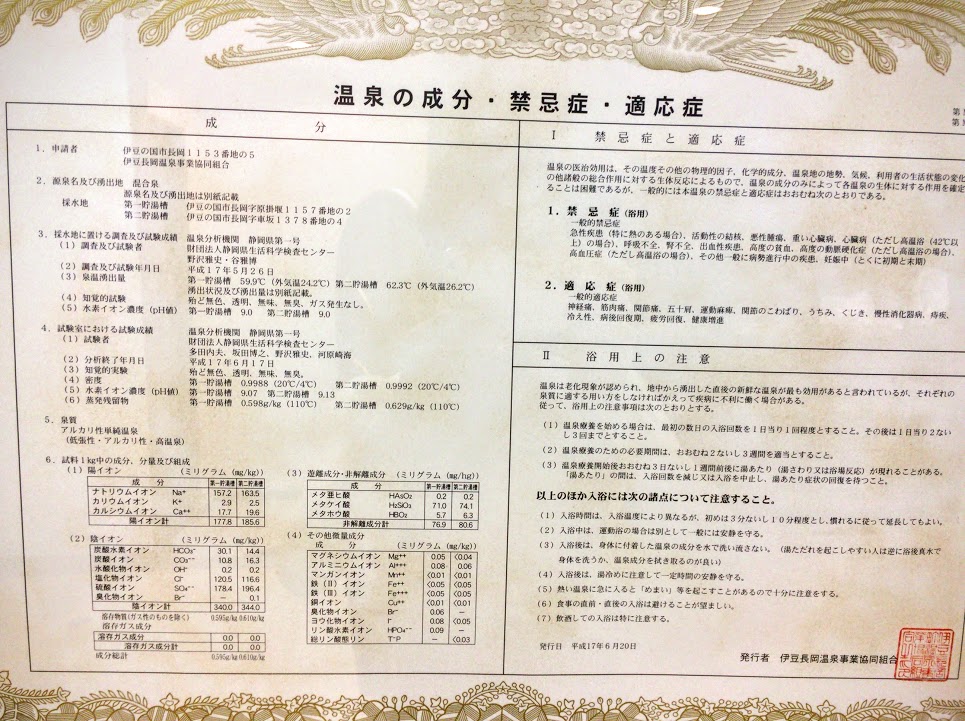 温泉の成分・禁忌症・適応症
第
第
成 分
1．申請者 伊豆の国市長岡1153番地の5
伊豆長岡温泉事業協同組合
2．源泉名及び湧出地 混合泉
源泉名及び湧出地は別紙記載
採水地 第一貯湯槽 伊豆の国市長岡字原掛堰1157番地の2
第二貯湯槽 伊豆の国市長岡字車坂1378番地の4
3．採水地に置ける調査及び試験成績 温泉分析機関 静岡県第一号
(1) 調査及び試験者 財団法人静岡県生活科学検査センター
野沢雅史・谷雅博
(2) 調査及び試験年月日 平成17年5月26日
(3) 泉温湧出量 第一貯湯槽 59.9℃（外気温24.2℃）第二貯湯槽 62.3℃（外気温26.2℃）
湧出状況及び湧出量は別紙記載。
(4) 知覚的試験 殆ど無色、透明、無味、無臭、ガス発生なし。
(5) 水素イオン濃度（pH値） 第一貯湯槽 9.0 第二貯湯槽 9.0
4．試験室における試験成績 温泉分析機関 静岡県第一号
(1) 試験者 財団法人静岡県生活科学検査センター
多田内夫、坂田博之、野沢雅史、河原崎海
(2) 分析終了年月日 平成17年6月17日
(3) 知覚的実験 殆ど無色、透明、無味、無臭。
(4) 密度 第一貯湯槽 0.9988（20℃/4℃） 第二貯湯槽 0.9992（20℃/4℃）
(5) 水素イオン濃度（pH値） 第一貯湯槽 9.07 第二貯湯槽 9.13
(6) 蒸発残留物 第一貯湯槽 0.598g/kg（110℃） 第二貯湯槽 0.629g/kg（110℃）
5．泉質
アルカリ性単純温泉
（低張性・アルカリ性・高温泉）
6．試料1kg中の成分、分量及び組成
(1) 陽イオン （ミリグラム（mg/kg））
成 分 第一貯湯槽 第二貯湯槽
ナトリウムイオン Na⁺ 157.2 163.5
カリウムイオン K⁺ 2.9 2.5
カルシウムイオン Ca⁺⁺ 17.7 19.6
陽イオン計 177.8 185.6
(2) 陰イオン （ミリグラム（mg/kg））
成 分 第一貯湯槽 第二貯湯槽
炭酸水素イオン HCO₃⁻ 30.1 14.4
炭酸イオン CO₃⁻⁻ 10.8 16.3
水酸化物イオン OH⁻ 0.2 0.2
塩化物イオン Cl⁻ 120.5 116.6
硫酸イオン SO₄⁻⁻ 178.4 196.4
臭化物イオン Br⁻ － 0.1
陰イオン計 340.0 344.0
溶存物質（ガス性のものを除く） 0.595g/kg 0.610g/kg
溶存ガス成分 0.0 0.0
溶存ガス成分計 0.0 0.0
成分総計 0.595g/kg 0.610g/kg
(3) 遊離成分・非解離成分 （ミリグラム（mg/hg））
成 分 第一貯湯槽 第二貯湯槽
メタ亜ヒ酸 HAsO₂ 0.2 0.2
メタケイ酸 H₂SiO₃ 71.0 74.1
メタホウ酸 HBO₂ 5.7 6.3
非解離成分計 76.9 80.6
(4) その他微量成分
成 分 （ミリグラム（mg/kg））
マグネシウムイオン Mg⁺⁺ 0.05 <0.04
アルミニウムイオン Al⁺⁺⁺ 0.08 0.06
マンガンイオン Mn⁺⁺ <0.01 <0.01
鉄（Ⅱ）イオン Fe⁺⁺ <0.05 <0.05
鉄（Ⅲ）イオン Fe⁺⁺⁺ <0.05 <0.05
銅イオン Cu⁺⁺ <0.01 <0.01
臭化物イオン Br⁻ 0.06 －
ヨウ化物イオン I⁻ 0.08 <0.05
リン酸水素イオン HPO₄⁻⁻ 0.09 －
総リン酸態リン T⁻P － <0.03
Ⅰ 禁忌症と適応症
温泉の医治効用は、その温度その他の物理的因子、化学的成分、温泉地の地勢、気候、利用者の生活状態の変化
の他諸般の総合作用に対する生体反応によるもので、温泉の成分のみによって各温泉の生体に対する作用を確定
ることは困難であるが、一般的には本温泉の禁忌症と適応症はおおむね次のとおりである。
1．禁忌症（浴用）
一般的禁忌症
急性疾患（特に熱のある場合）、活動性の結核、悪性腫瘍、重い心臓病、心臓病（ただし高温浴（42℃以
上）の場合）、呼吸不全、腎不全、出血性疾患、高度の貧血、高度の動脈硬化症（ただし高温浴の場合）、
高血圧症（ただし高温浴の場合）、その他一般に病勢進行中の疾患、妊娠中（とくに初期と末期）
2．適応症（浴用）
一般的適応症
神経痛、筋肉痛、関節痛、五十肩、運動麻痺、関節のこわばり、うちみ、くじき、慢性消化器病、痔疾、
冷え性、病後回復期、疲労回復、健康増進
Ⅱ 浴用上の注意
温泉は老化現象が認められ、地中から湧出した直後の新鮮な温泉が最も効用があると言われているが、それぞれの
泉質に適する用い方をしなければかえって疾病に不利に働く場合がある。
従って、浴用上の注意事項は次のとおりとする。
(1) 温泉療養を始める場合は、最初の数日の入浴回数を1日当り1回程度とすること。その後は1日当り2ない
し3回までとすること。
(2) 温泉療養のための必要期間は、おおむね2ないし3週間を適当とすること。
(3) 温泉療養開始後おおむね3日ないし1週間前後に湯あたり（湯さわり又は浴場反応）が現れることがある。
「湯あたり」の間は、入浴回数を減じ又は入浴を中止し、湯あたり症状の回復を待つこと。
以上のほか入浴には次の諸点について注意すること。
(1) 入浴時間は、入浴温度により異なるが、初めは3分ないし10分程度とし、慣れるに従って延長してもよい。
(2) 入浴中は、運動浴の場合は別として一般には安静を守る。
(3) 入浴後は、身体に付着した温泉の成分を水で洗い流さない。（湯ただれを起こしやすい人は逆に浴後真水で
身体を洗うか、温泉成分を拭き取るのが良い）
(4) 入浴後は、湯冷めに注意して一定時間の安静を守る。
(5) 熱い温泉に急に入ると「めまい」等を起こすことがあるので十分に注意をする。
(6) 食事の直前・直後の入浴は避けることが望ましい。
(7) 飲酒しての入浴は特に注意する。
発行日 平成17年6月20日
発行者 伊豆長岡温泉事業協同組合